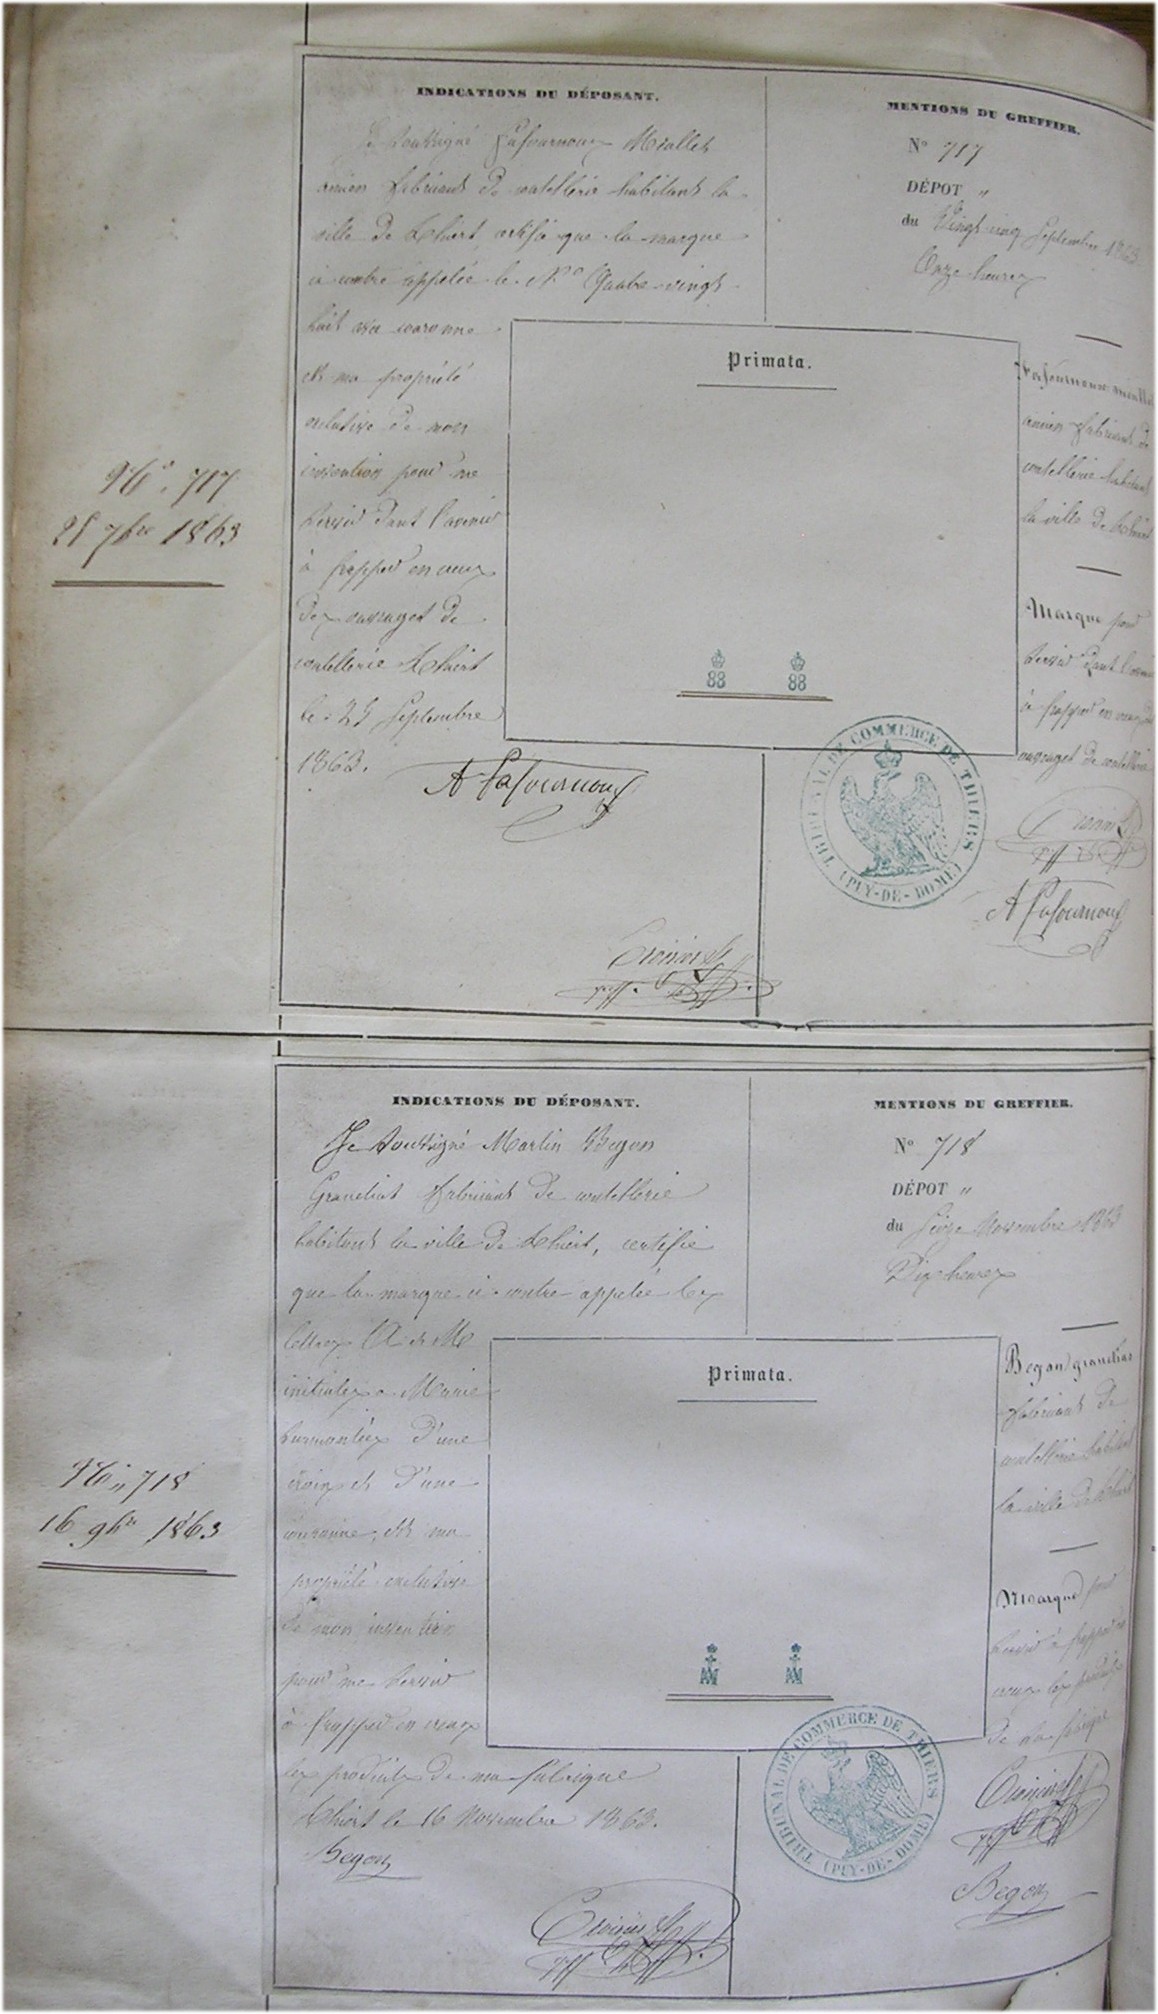 INDICATIONS DU DÉPOSANT.
Je soussigné Lafournoux Miallet
ancien fabricant de coutellerie habitant la
ville de Thiers, certifie que la marque
ci contre appelée le No Quatre-vingt
huit avec couronne
est ma propriété
exclusive de mon
invention pour me
servir dans l'avenir
à frapper en creux
des ouvrages de
coutellerie Thiers
le 25 Septembre
1863.
A Lafournoux
MENTIONS DU GREFFIER.
No 717
DÉPOT "
du Vingt cinq Septembre 1863
Onze heures
Primata.
88 88
Lafournoux miallet
ancien fabricant de
coutellerie habitant
la ville de Thiers
Marque pour
servir dans l'avenir
à frapper en creux
ouvrages de coutellerie
TRIBUNAL DE COMMERCE DE THIERS
(PUY-DE-DOME)
A Lafournoux
No. 717
25 7bre 1863
INDICATIONS DU DÉPOSANT.
Je soussigné Martin Begon
Granetias fabricant de coutellerie
habitant la ville de Thiers, certifie
que la marque ci-contre appelée les
lettres A et M
initiales Marie
surmontées d'une
croix et d'une
couronne, est ma
propriété exclusive
de mon invention
pour me servir
à frapper en creux
les produits de ma fabrique
Thiers le 16 Novembre 1863.
Begon
MENTIONS DU GREFFIER.
No 718
DÉPOT "
du Seize Novembre 1863
Dix heures
Primata.
AM AM
Begon granetias
fabricant de
coutellerie habitant
la ville de Thiers
Marque pour
servir à frapper en
creux les produits
de sa fabrique
TRIBUNAL DE COMMERCE DE THIERS
(PUY-DE-DOME)
Begon
No " 718
16 9bre 1863